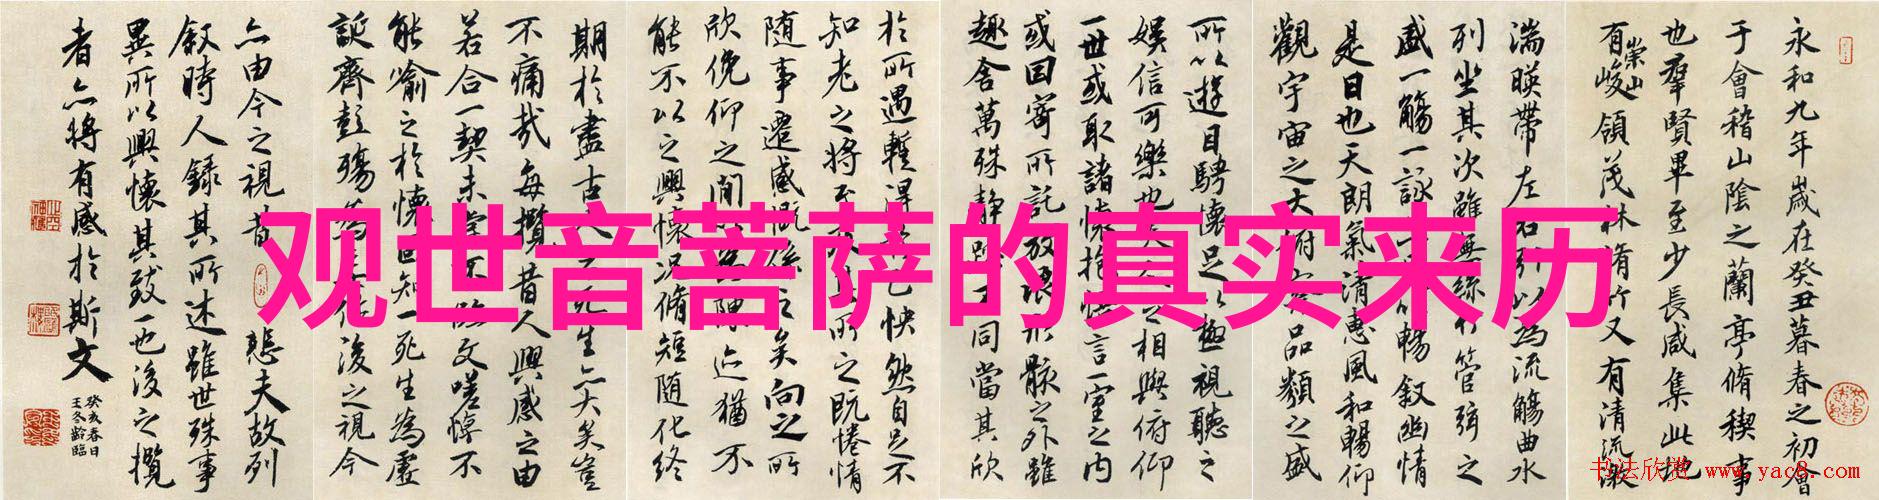 永和九年歲在癸丑暮春之初會
于會稽山陰之蘭亭脩稧事
也羣賢畢至少長咸集此地
有崇山峻領茂林脩竹又有清流激
湍暎帶左右引以為流觴曲水
列坐其次雖無絲竹管弦之
盛一觴一詠暢敘幽情
是日也天朗氣清惠風和暢仰
觀宇宙之大俯察品類之盛
所以遊目騁懷足以極視聽之
娛信可樂也夫人之相與俯仰
一世或取諸懷抱悟言一室之內
或因寄所託放浪形骸之外雖
趣舍萬殊靜躁不同當其欣
於所遇暫得己怏然自足不
知老之將至所之既惓情
随事遷感慨係之矣向之所
欣俛仰之閒以為陳迹猶不
能不以之興懷況脩短随化終
期於盡古人死生亦大矣豈
不痛哉每攬昔人興感之由
若合一契未嘗不臨文嗟悼不
能喻之於懷固知一死生為虛
誕齊彭殤為作後之視今
亦由今之視昔悲夫故列
敘時人錄其所述雖世殊事
異所以興懷其致一也後之攬
者亦將有感於斯文
癸亥春日
王冬齡臨
观世音菩萨的真实来历
书法欣赏 www.yac8.com